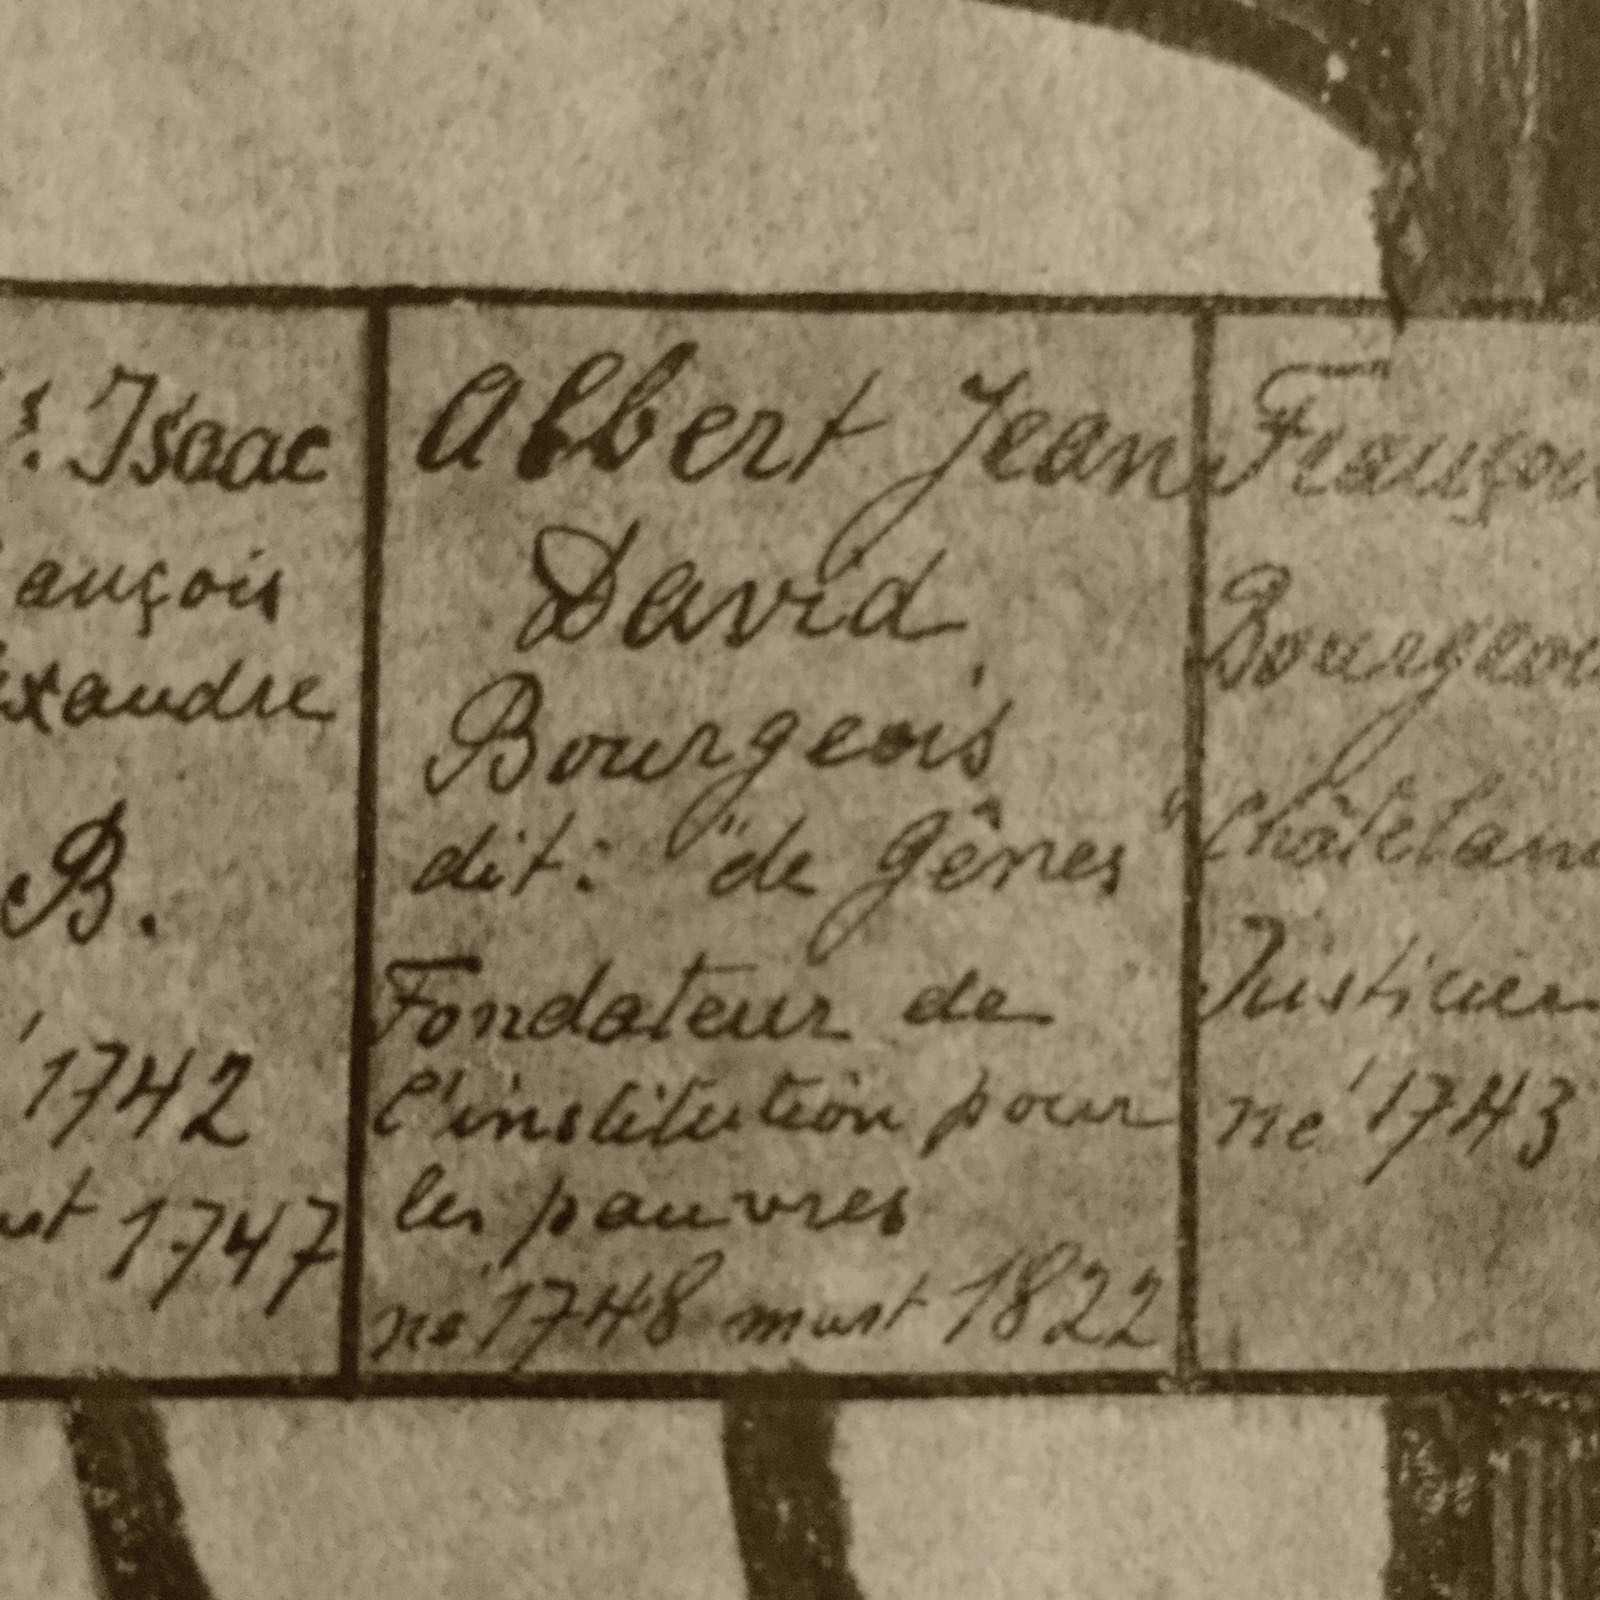 Isaac
ançois
xandre
B.
1742
1747
Albert Jean
David
Bourgeois
dit: "de Gênes"
Fondateur de
l'institution pour
les pauvres
né 1748 murt 1822
Bourgeoi
Châtelain
Justicier
né 1743